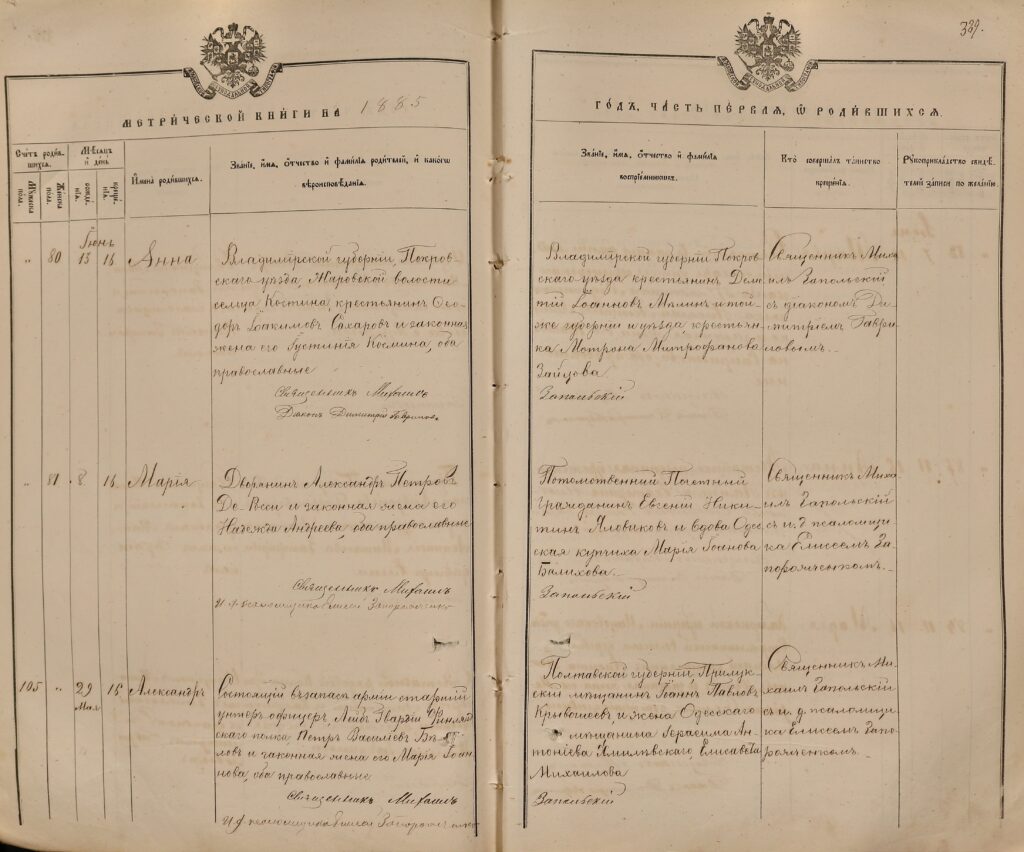 339.
МЕТРИ́ЧЕСКОЙ КНИ́ГИ НА 1885
ГО́ДЪ, ЧА́СТЬ ПЕ́РВАЯ, Ѡ РОДИ́ВШИХСЯ.
Сче́тъ роди́в-
шихся.
Му́жеска
пола.
Же́нска
пола.
Мѣ́сяцъ
и де́нь
рожде́-
нія.
креще́-
нія.
И́мена роди́вшихся.
Зва́ніе, и́мя, о́тчество и фами́лія роди́телей, и како́гѡ
вѣроисповѣ́данія.
Зва́ніе, и́мя, о́тчество и фами́лія
воспріе́мниковъ.
Кто̀ соверша́лъ та́инство
креще́нія.
Рꙋкоприкла́дство свидѣ́-
телей за́писи по жела́нію.
"
80
Іюнь
13
16
Анна
Владимірской губерніи, Покров-
скаго уѣзда, Жаровской волости
сельца Костина, крестьянинъ Ѳео-
доръ Іоакимовъ Сахаровъ и законная
жена его Іустинія Космина, оба
православные
Священникъ Михаилъ
Діаконъ Димитрій Гавриловъ
Владимірской губерніи Покров
скаго уѣзда крестьянинъ Дими
трій Іоанновъ и той-
же губерніи и уѣзда, крестьян-
ка Матрона Митрофанова
Зайцова
Запольскій
Священникъ Миха-
илъ Запольскій
съ діакономъ Ди-
митріемъ Гаври-
ловымъ.
"
81
8
16
Марія
Дворянинъ Александръ Петровъ
Де-Росси и законная жена его
Надежда Андреева, оба православные
Священникъ Михаилъ
И. д. псаломщика Елисей Запорожченко
Потомственный Почетный
Гражданинъ Евгеній Ники-
тинъ Яловиковъ и вдова Одес-
ская купчиха Марія Іоанова
Балихова.
Запольскій
Священникъ Миха-
илъ Запольскій
съ и. д. псаломщи-
ка Елисеемъ За-
порожченкомъ.
105
"
29
Мая
16
Александръ
Состоящій въ запасѣ арміи старшій
унтеръ офицеръ, Лейбъ Гвардіи Финлянд
скаго полка, Петръ Василіевъ
ловъ и законная жена его Марія Іоан
нова, оба православные
Священникъ Михаилъ
И. д. псаломщика Елисей
Полтавской губерніи, Прилук-
скій мѣщанинъ Іоаннъ Павловъ
Крывошеевъ, и жена Одесскаго
мѣщанина Герасима Ан-
тоніева Елисавета
Михаилова
Запольскій
Священникъ Ми-
хаилъ Запольскій
съ и. д. псаломщи-
ка Елисеемъ Запо-
рожченкомъ.